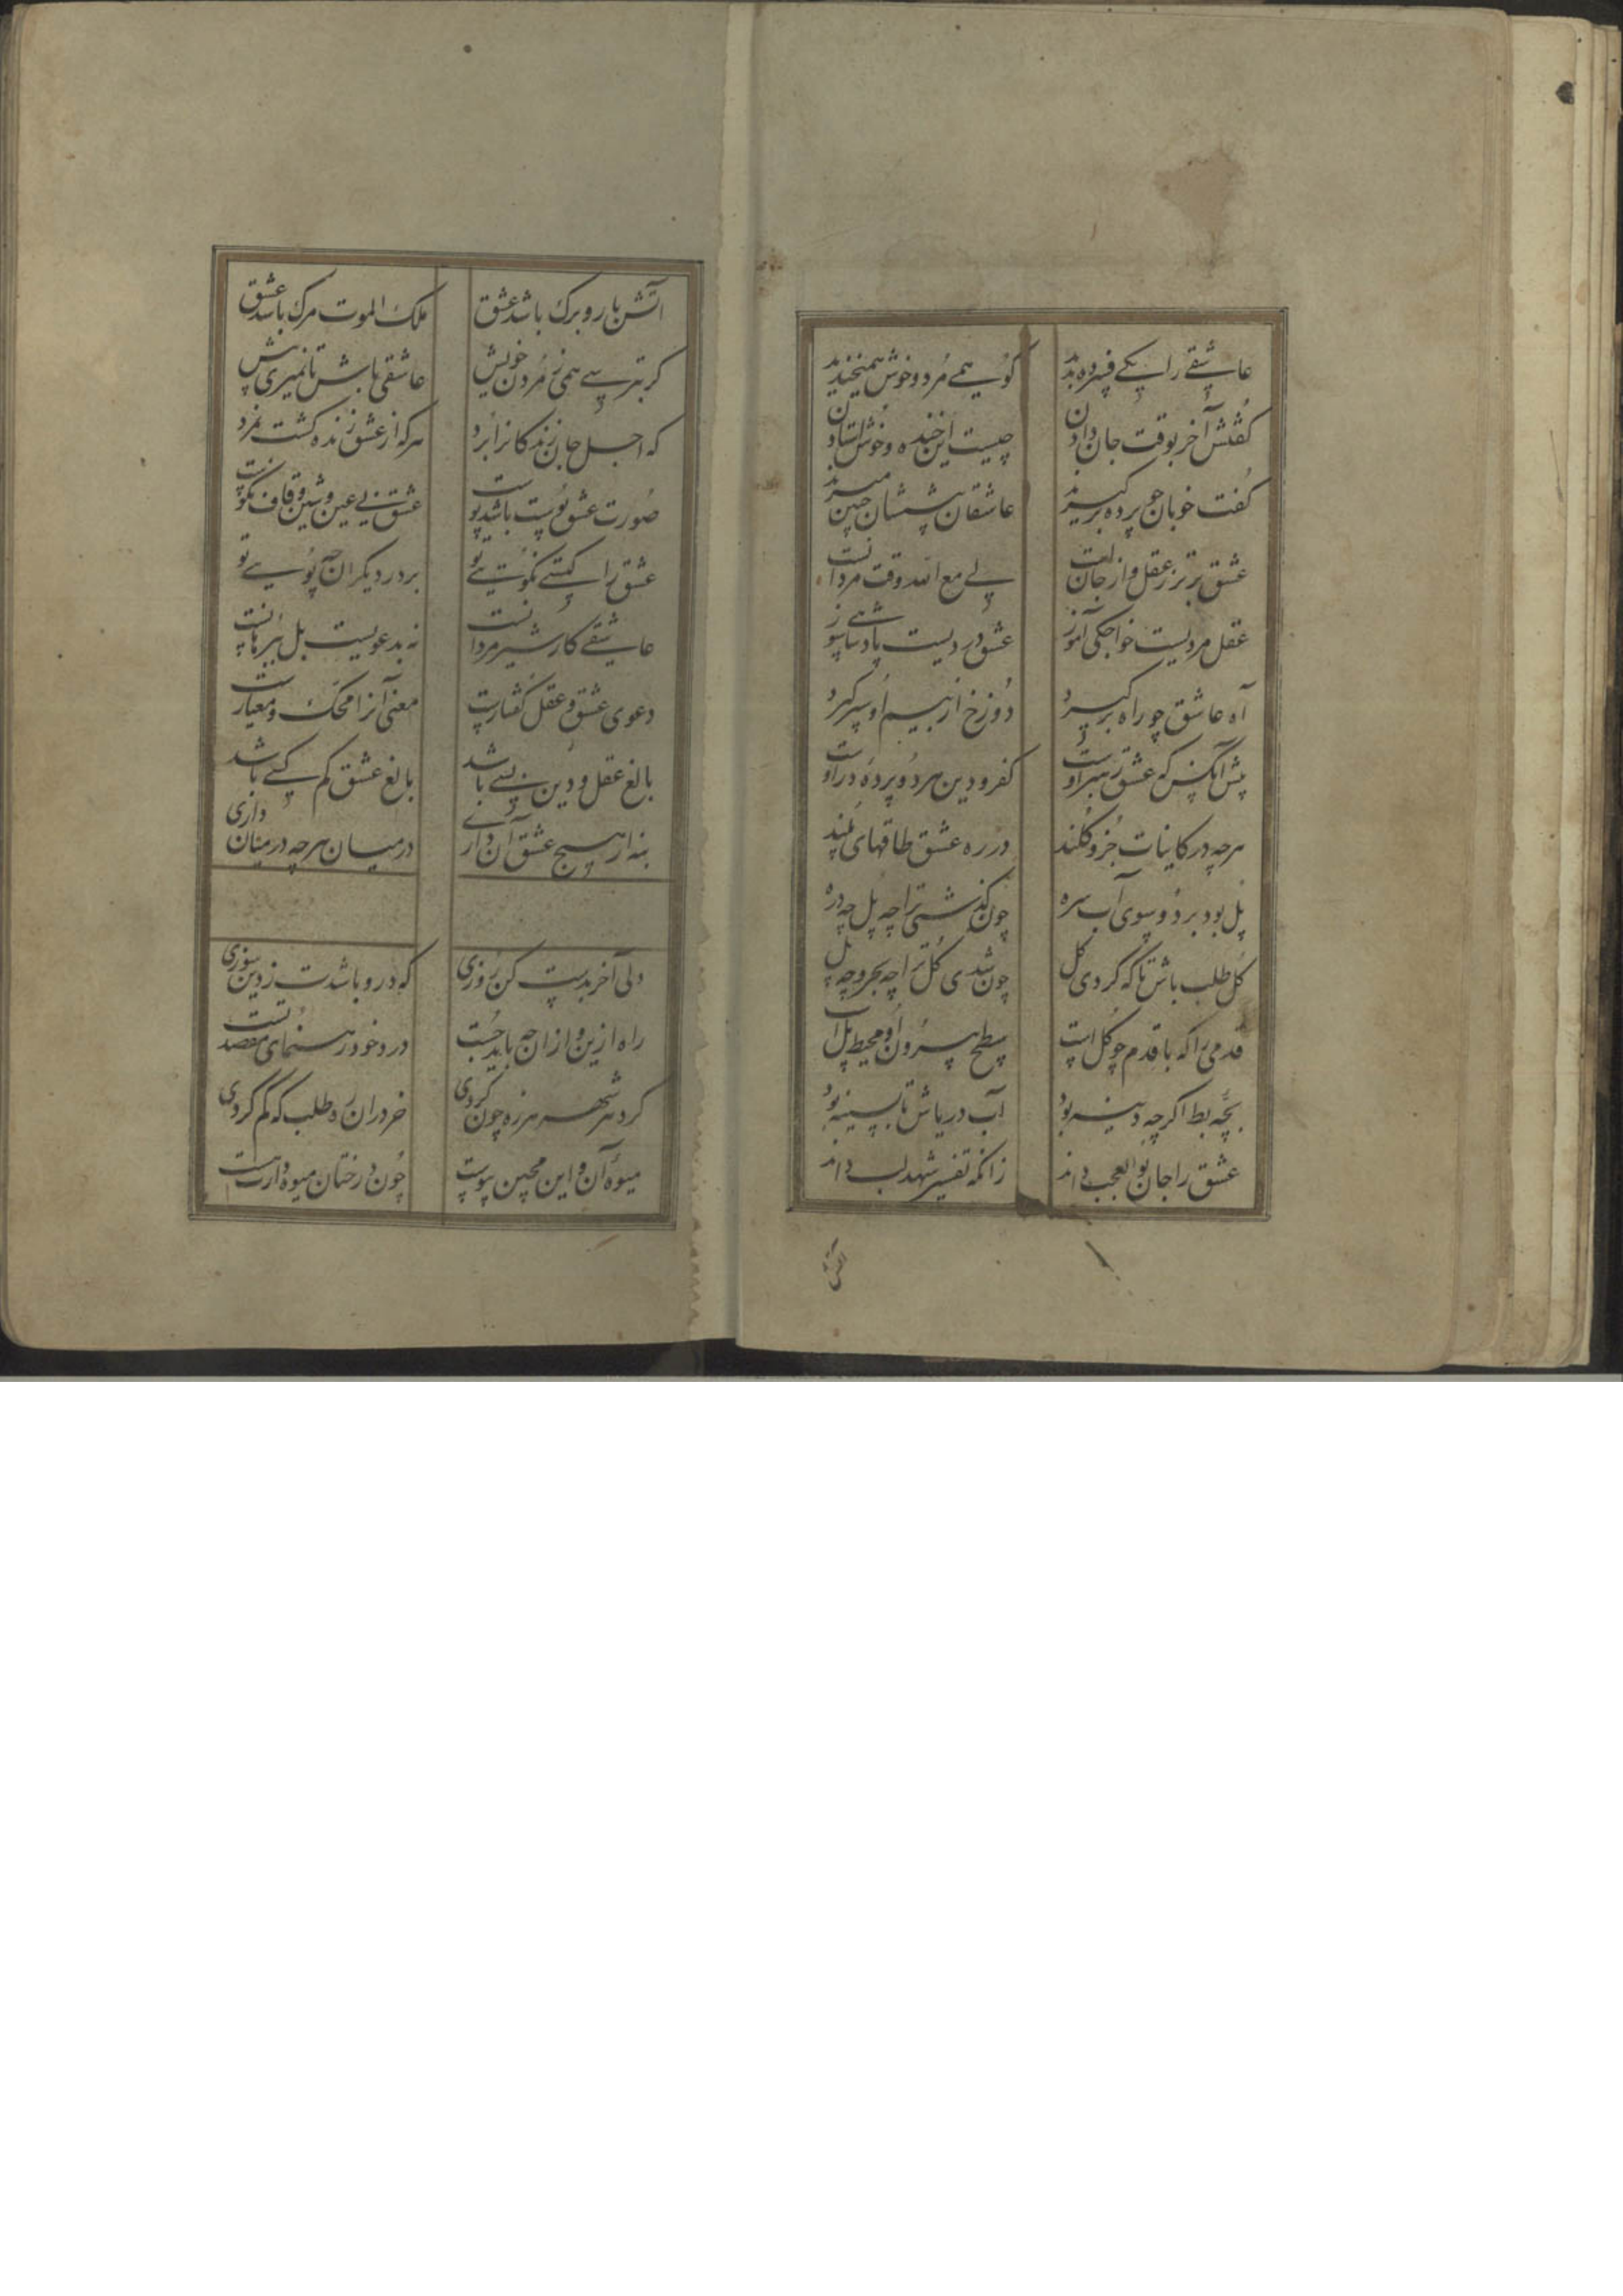 عاشقی را یکی فسرده بدید
کو همی مرد و خوش همیخندید
گفتش آخر بوقت جان دادن
چیست این خنده و خوش استادن
گفت خوبان چو پرده برگیرند
عاشقان پیششان چنین میرند
عشق برتر ز عقل و از جانست
لی مع الله وقت مردانست
عقل مردیست خواجگی آموز
عشق دردیست پادشاهی سوز
آه عاشق چو راه برگیرد
دوزخ از بیم او سپر گیرد
پیش آنکس که عشق رهبر اوست
کفر و دین هر دو پرده در اوست
هرچه در کاینات جزو و کلند
در ره عشق طاقهای پلند
پل بود برد و سوی آب سره
چون گذشتی ترا چه پل چه دره
کل طلب باش تا که گردی کل
چون شدی کل ترا چه بحر و چه پل
قدمی را که با قدم چو کل است
سطح بیرون او محیط پل است
بچه بط اگرچه دینه بود
آب دریاش تا بسینه بود
عشق را جان بوالعجب داند
زانکه تفسیر شهد لب داند
آتش
آتش بار و برگ باشد عشق
ملک الموت مرگ باشد عشق
گر بترسی همی ز مردن خویش
عاشقی باش تا نمیری پیش
که اجل جان زندگانرا برد
هرکه از عشق زنده گشت نمرد
صورت عشق پوست باشد پوست
عشق بی عین و شین و قاف نکوست
عشق را کس نگوت
بر در دیگران چه پویی تو
عاشقی کار شیر مردانست
نه بدعویست بل ببرهانست
دعوی عشق و عقل گفتارست
معنی آنرا محک و معیارست
بالغ عقل و دین بسی باشد
بالغ عشق کم کسی باشد
بنه ار هیچ عشق آن داری
در میان هرچه در میان داری
دلی آخر بدست کن روزی
که درو باشدت ز دین سوزی
راه ازین و ازان چه باید جست
درد خود رهنمای مقصد تست
گرد هر شهر هرزه چون گردی
خر دران ره طلب که گم کردی
میوه آن و این مچین پیوست
چون درختان میوه دارت هست